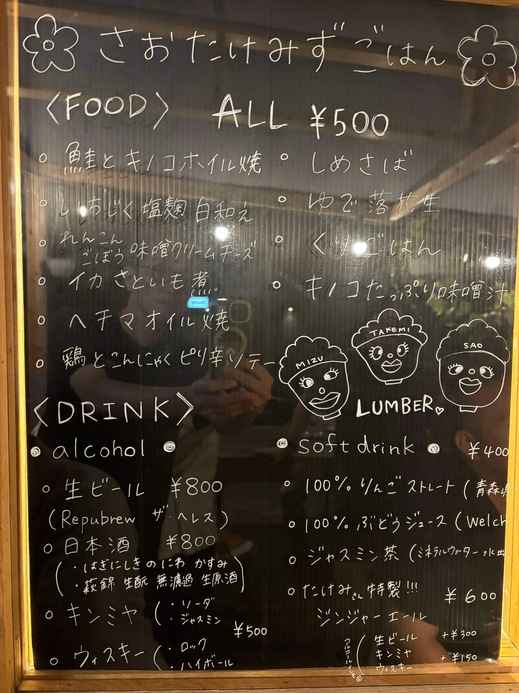 さおたけみずごはん
〈FOOD〉 ALL ¥500
○ 鮭とキノコホイル焼
○ いちじく塩麹白和え
○ れんこんごぼう味噌クリームチーズ
○ イカさといも煮
○ ヘチマオイル焼
○ 鶏とこんにゃくピリ辛ソテー
○ しめさば
○ ゆで落花生
○ くりごはん
○ キノコたっぷり味噌汁
MIZU
TAKEMI
SAO
LUMBER
〈DRINK〉
alcohol
○ 生ビール ¥800
(Repubrew ザ・ヘレス)
○ 日本酒 ¥800
・はぎにしきのにわ かすみ
・萩錦 生酛 無濾過 生原酒
○ キンミヤ (・ソーダ
・ジャスミン
¥500
○ ウィスキー (・ロック
・ハイボール
soft drink ¥400
○ 100% りんごストレート (青森
○ 100% ぶどうジュース (Welch
○ ジャスミン茶 (ミネラルウォーター水出
○ たけみさん特製!!! ¥600
ジンジャーエール
生ビール +¥300
キンミヤ
ウィスキー +¥150